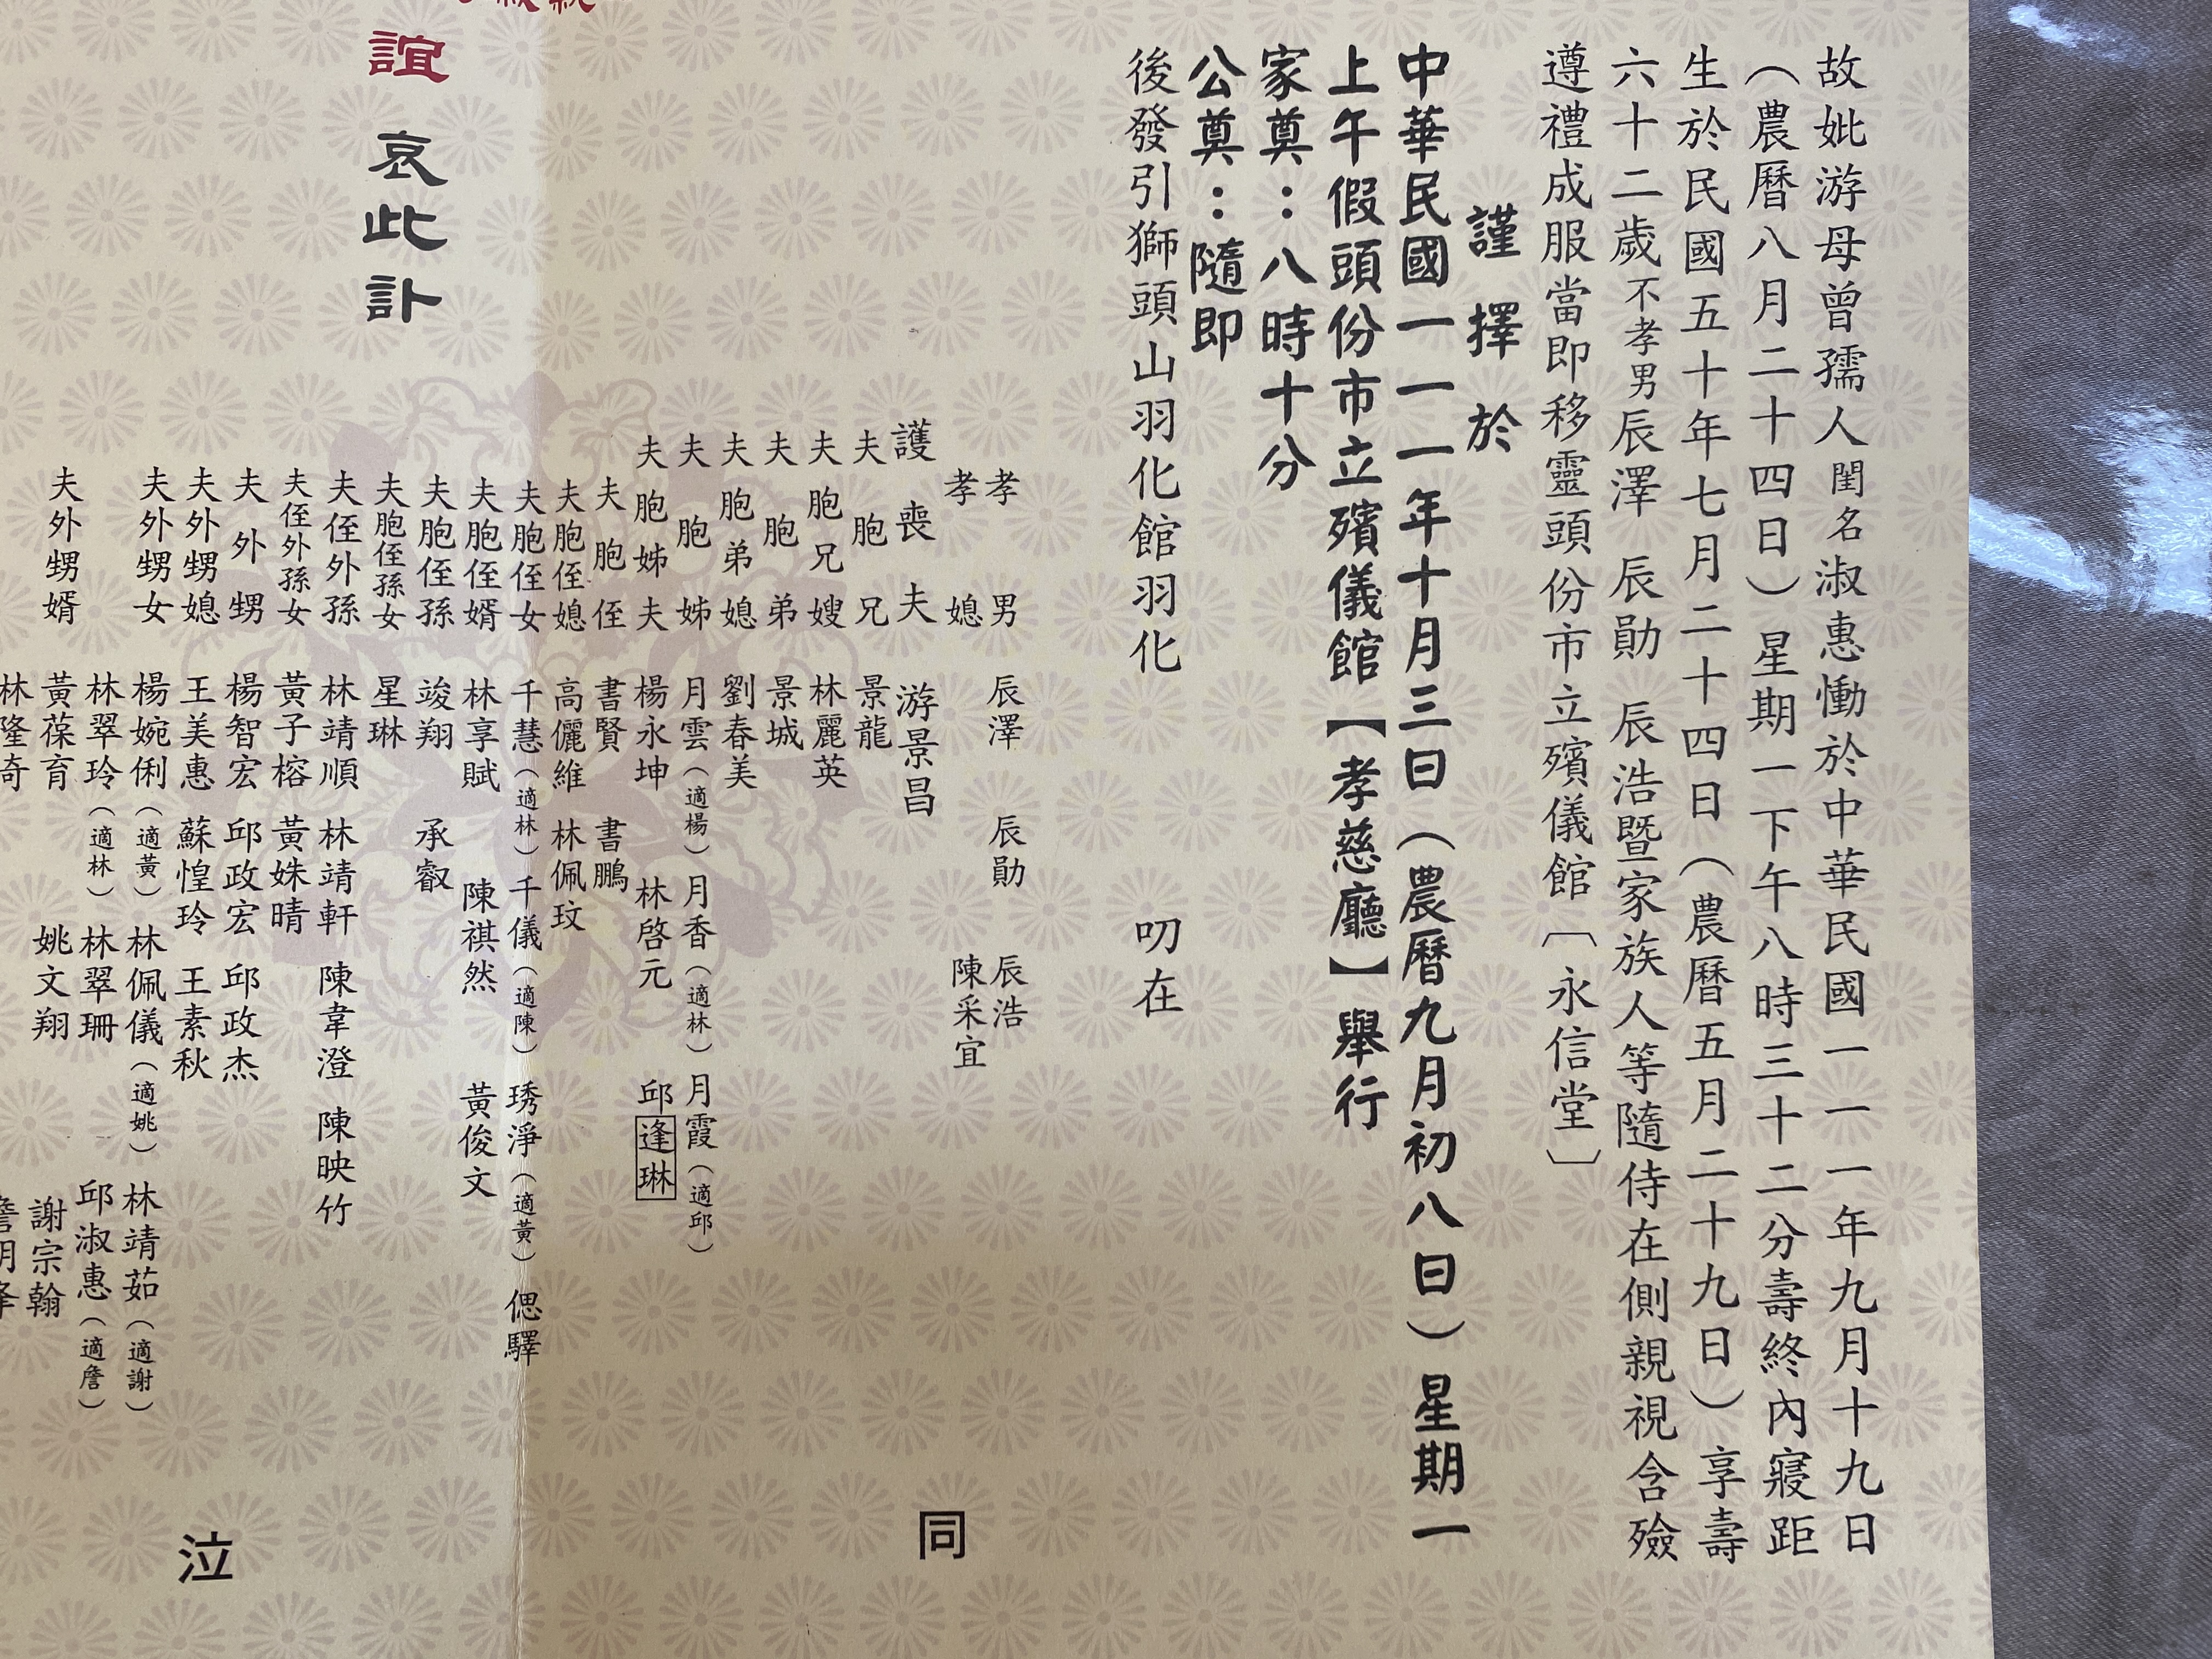 故妣游母曾孺人閨名淑惠慟於中華民國一一一年九月十九日
（農曆八月二十四日）星期一下午八時三十二分壽終內寢距
生於民國五十年七月二十四日（農曆五月二十九日）享壽
六十二歲不孝男辰澤 辰勛 辰浩暨家族人等隨侍在側親視含殮
遵禮成服當即移靈頭份市立殯儀館〔永信堂〕
謹擇於
中華民國一一一年十月三日（農曆九月初八日）星期一
上午假頭份市立殯儀館【孝慈廳】舉行
家奠：八時十分
公奠：隨即
後發引獅頭山羽化館羽化
叨在
孝男 辰澤 辰勛 辰浩
孝媳 陳采宜
護喪夫 游景昌
夫胞兄 景龍
夫胞兄嫂 林麗英
夫胞弟 景城
夫胞弟媳 劉春美
夫胞姊 月雲（適楊）月香（適林）月霞（適邱）
夫胞姊夫 楊永坤 林啓元 邱逢琳
夫胞侄 書賢 書鵬
夫胞侄媳 高儷維 林佩玟
夫胞侄女 千慧（適林）千儀（適陳）琇淨（適黃）偲驛
夫胞侄婿 林享賦 陳祺然 黃俊文
夫胞侄孫 竣翔 承叡
夫胞侄孫女 星琳
夫侄外孫 林靖順 林靖軒 陳韋澄 陳映竹
夫侄外孫女 黃子榕 黃姝晴
夫外甥 楊智宏 邱政宏 邱政杰
夫外甥媳 王美惠 蘇惶玲 王素秋
夫外甥女 楊婉俐（適黃）林佩儀（適姚）林靖茹（適謝）
林翠玲（適林）林翠珊 邱淑惠（適詹）
夫外甥婿 黃葆育 姚文翔 謝宗翰
林隆奇
同
泣
誼
哀此訃